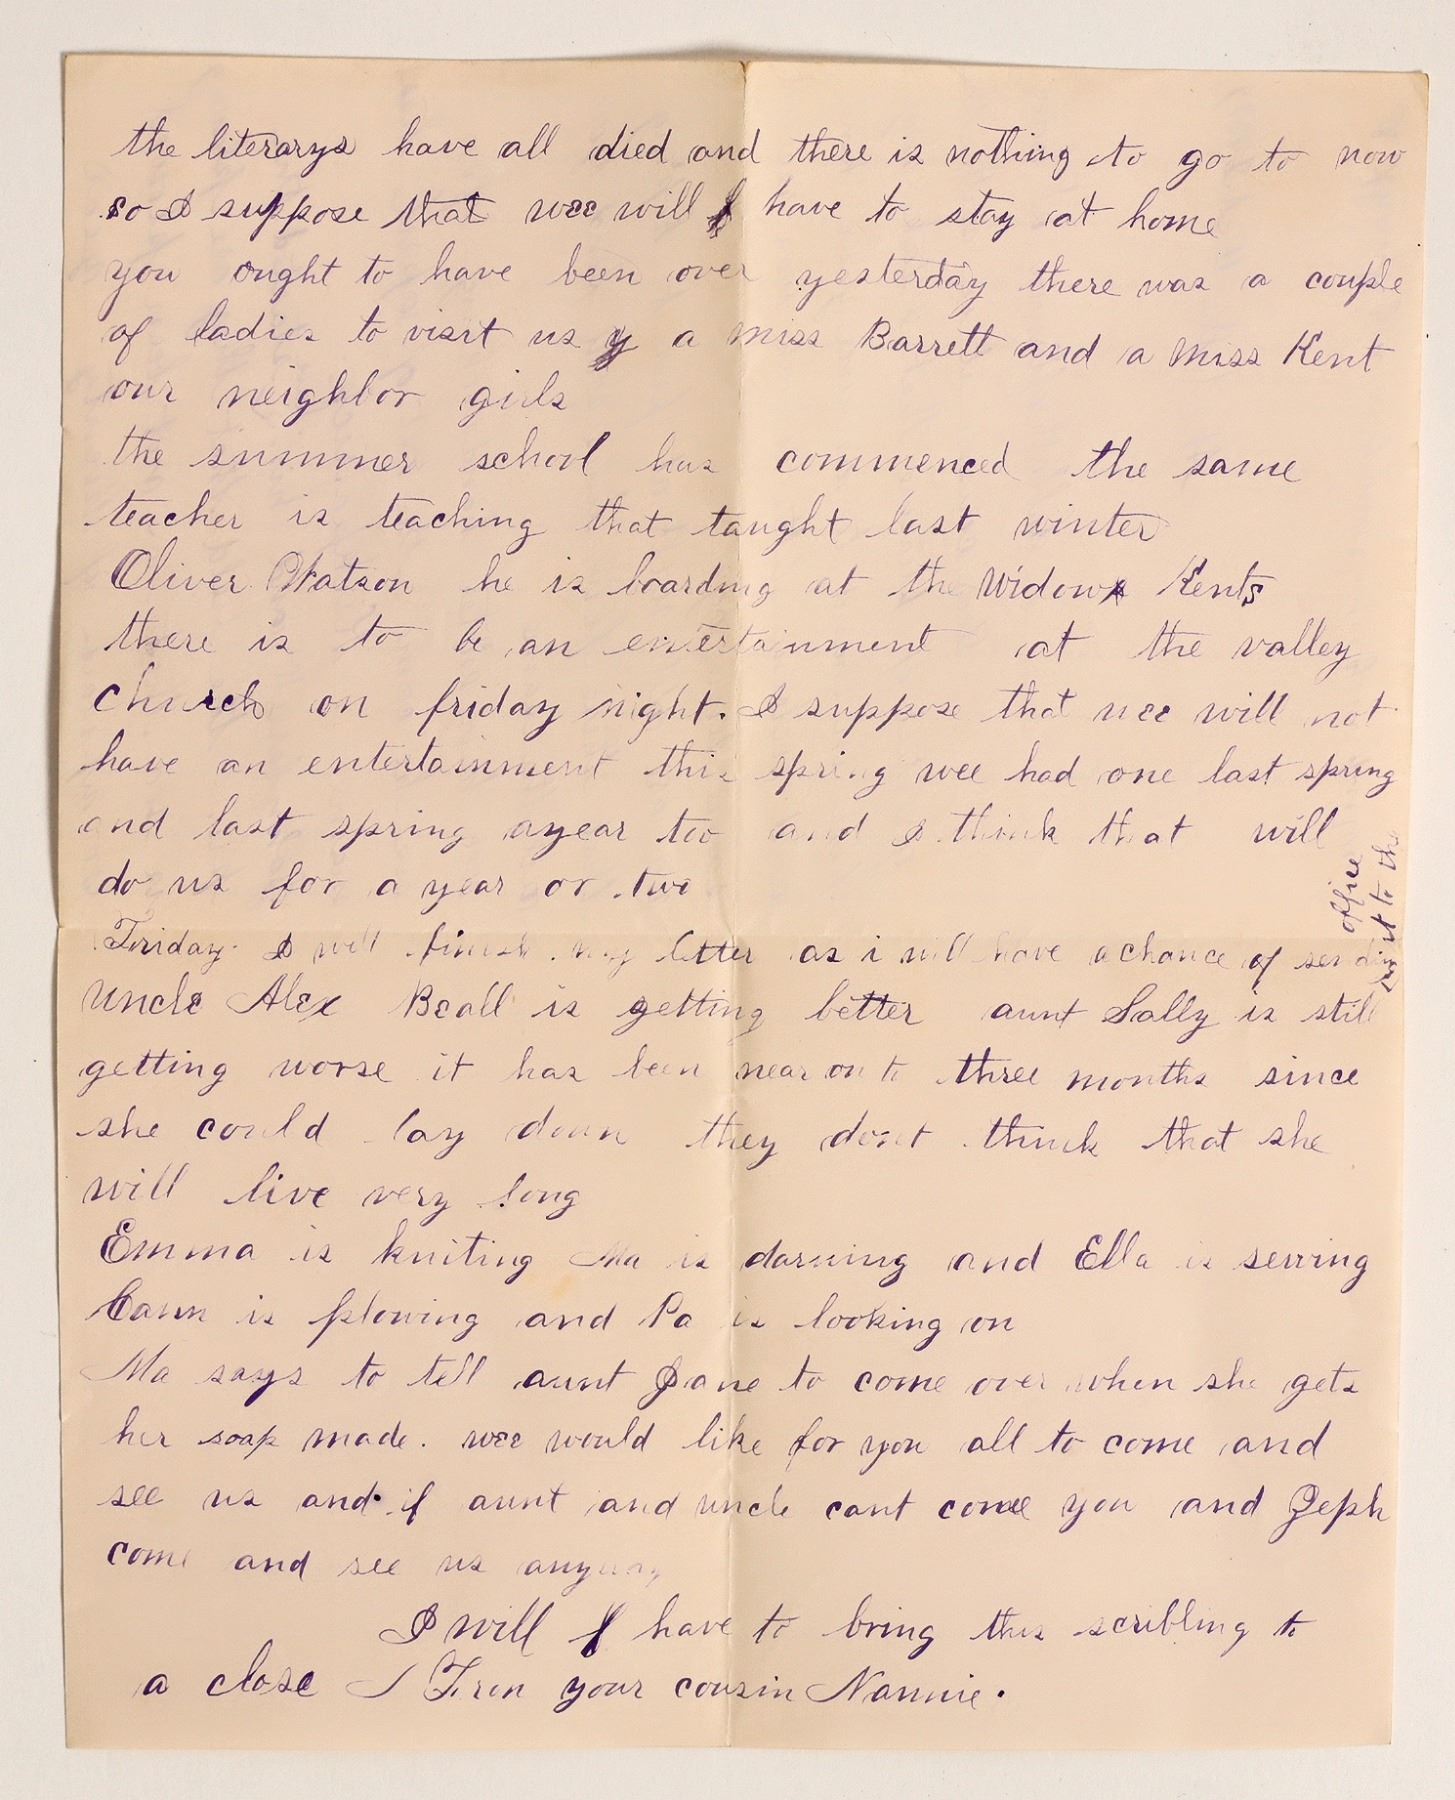 the literarys have all died and there is nothing to go to now
so I suppose that wee will have to stay at home
you ought to have been over yesterday there was a couple
of ladies to visit us y a miss Barrett and a miss Kent
our neighbor girls
the summer school has commenced the same
teacher is teaching that taught last winter
Oliver Watson he is boarding at the Widow Kents
there is to be an entertainment at the valley
church on friday night. I suppose that wee will not
have an entertainment this spring wee had one last spring
and last spring ayear too and I think that will
do us for a year or two
Friday I will finish my letter as i will have a chance of sending
it to the
office
Uncle Alex Beall is getting better aunt Sally is still
getting worse it has been near onto three months since
she could lay down they dont think that she
will live very long
Emma is kniting Ma is darning and Ella is sewing
is plowing and Pa is looking on
Ma says to tell aunt Jane to come over when she gets
her soap made. wee would like for you all to come and
see us and if aunt and uncle cant come you and Zeph
come and see us anyway
I will have to bring this scribling to
a close From your cousin Nannie.